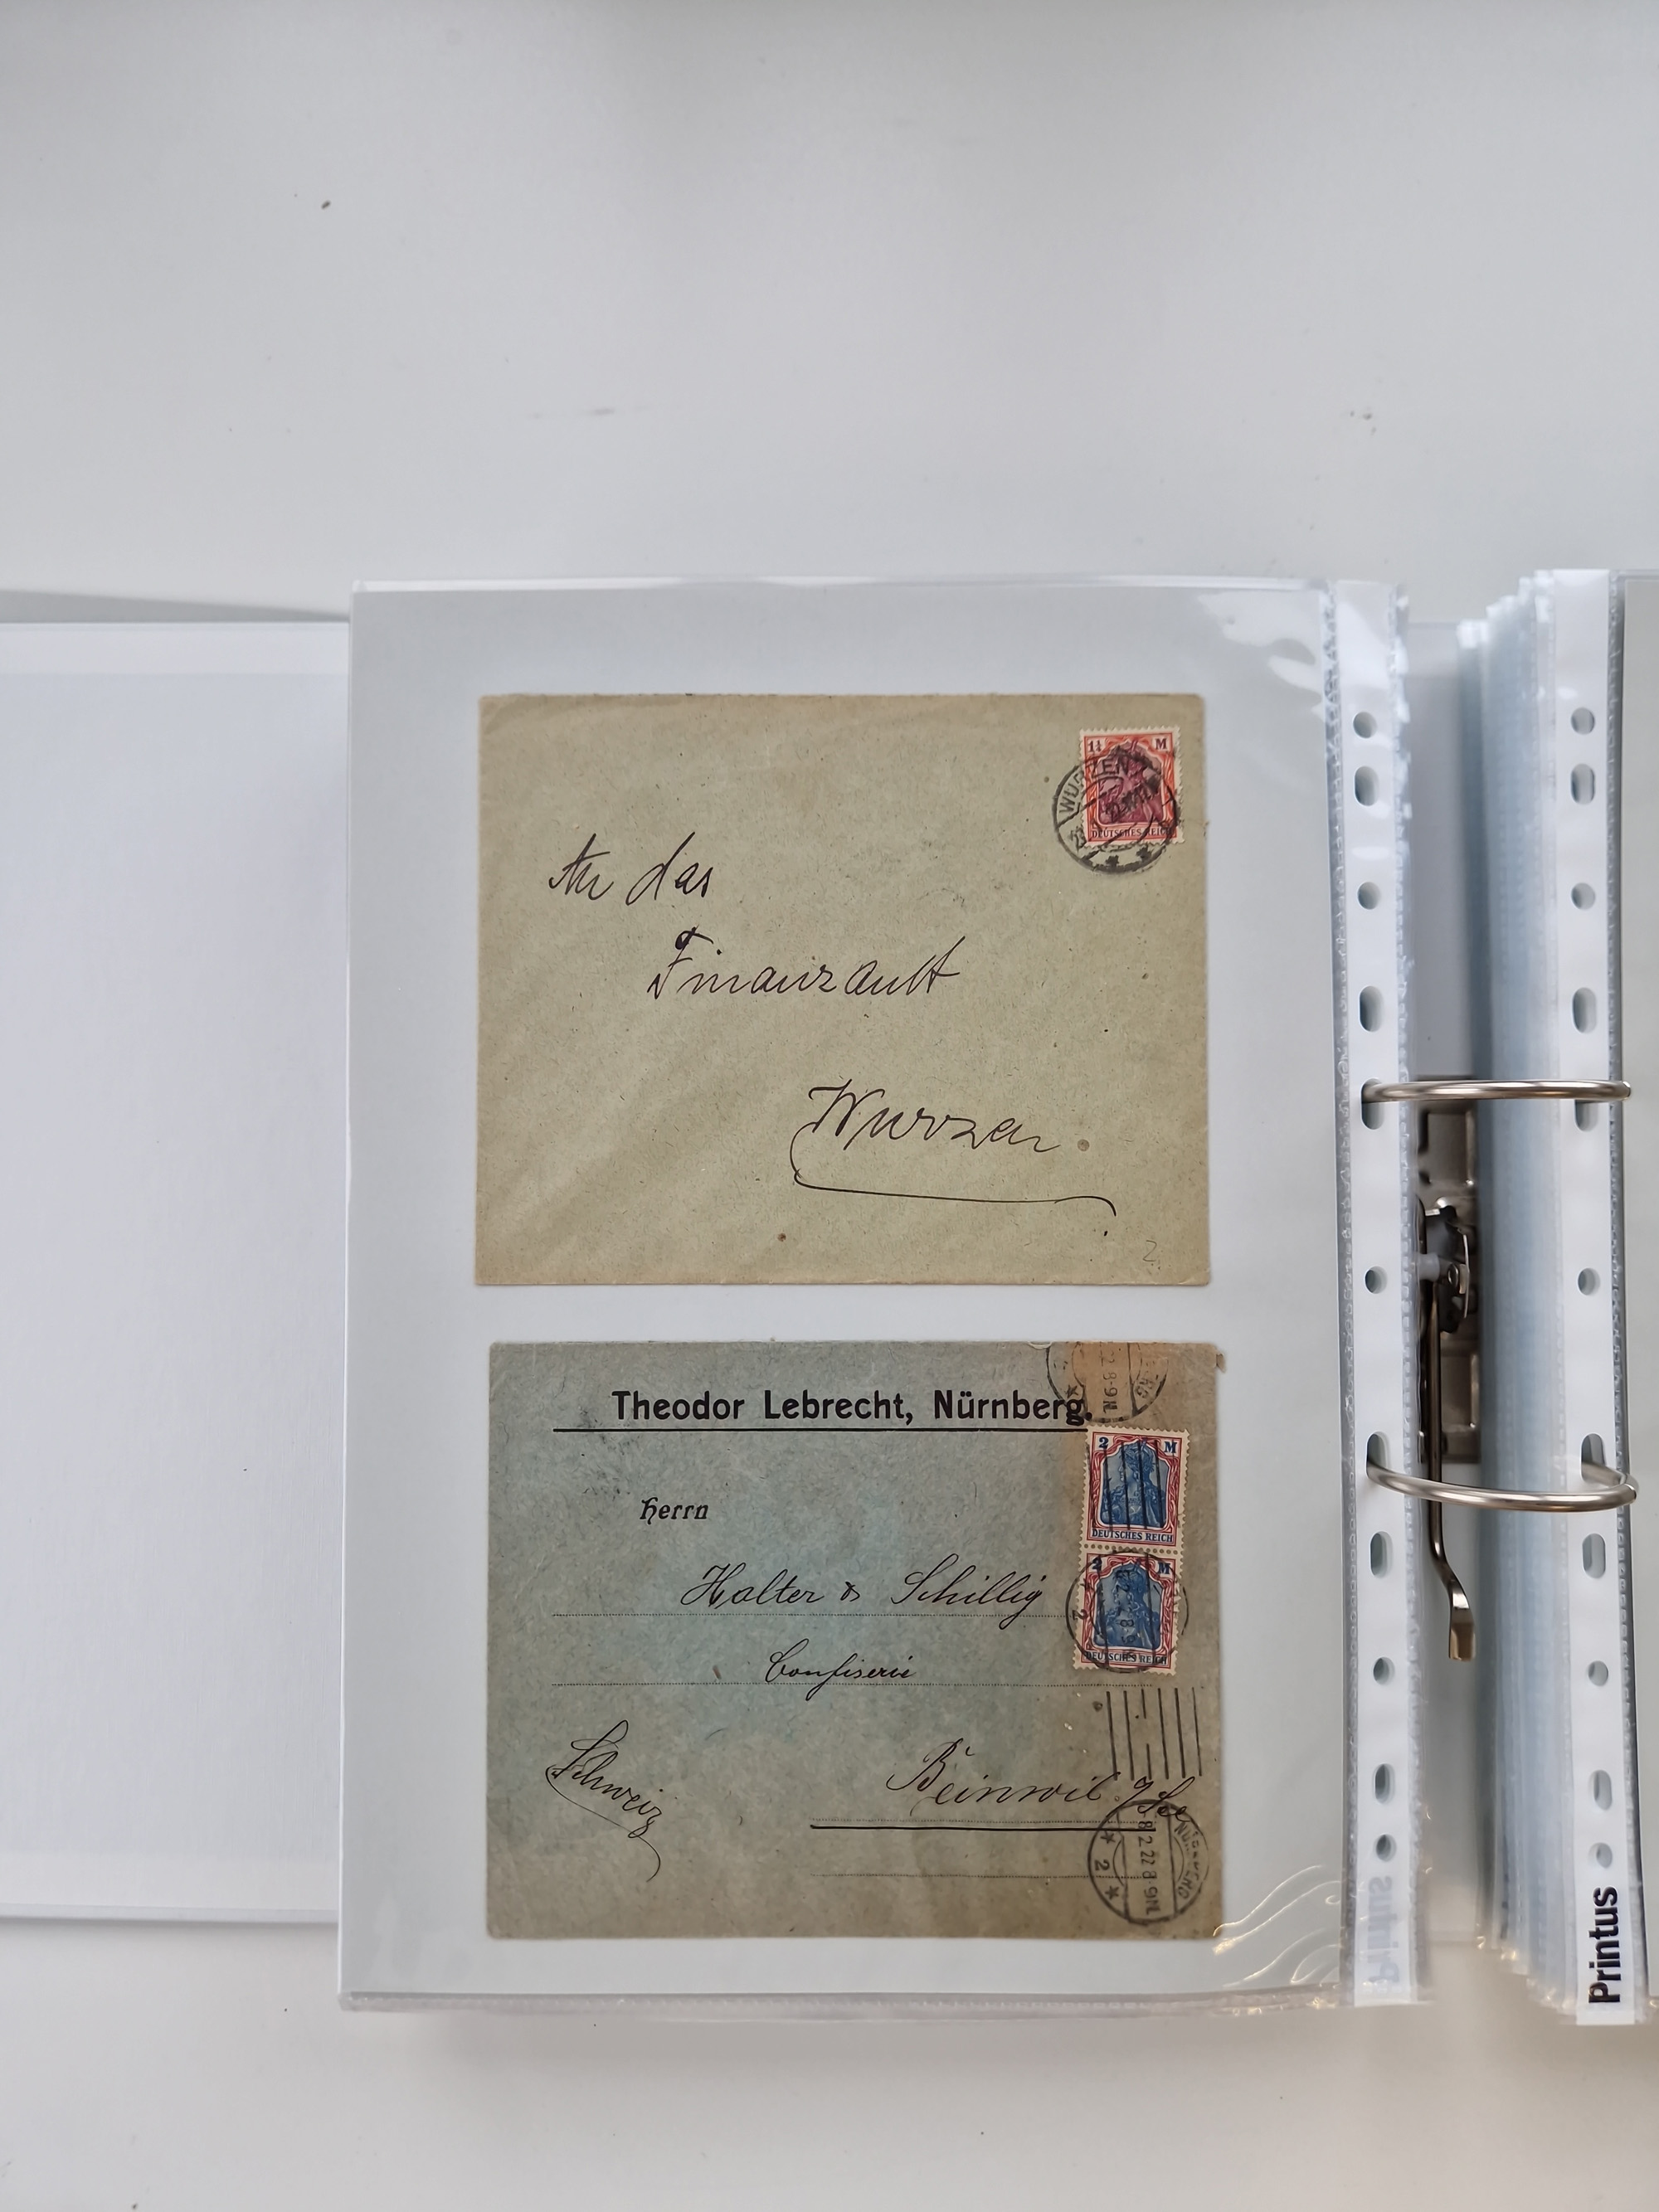 1¼ M
WURZEN
DEUTSCHES REICH
An das
Finanzamt
Wurzen.
2
Theodor Lebrecht, Nürnberg.
2 8-9 N.
2 M
DEUTSCHES REICH
Herrn
2 M
Halter & Schillig
2
DEUTSCHES REICH
Confiserie
Schweiz
Beinwil a/See
NÜRNBERG
8.2.22 8-9 N.
* 2 *
Printus
Printus